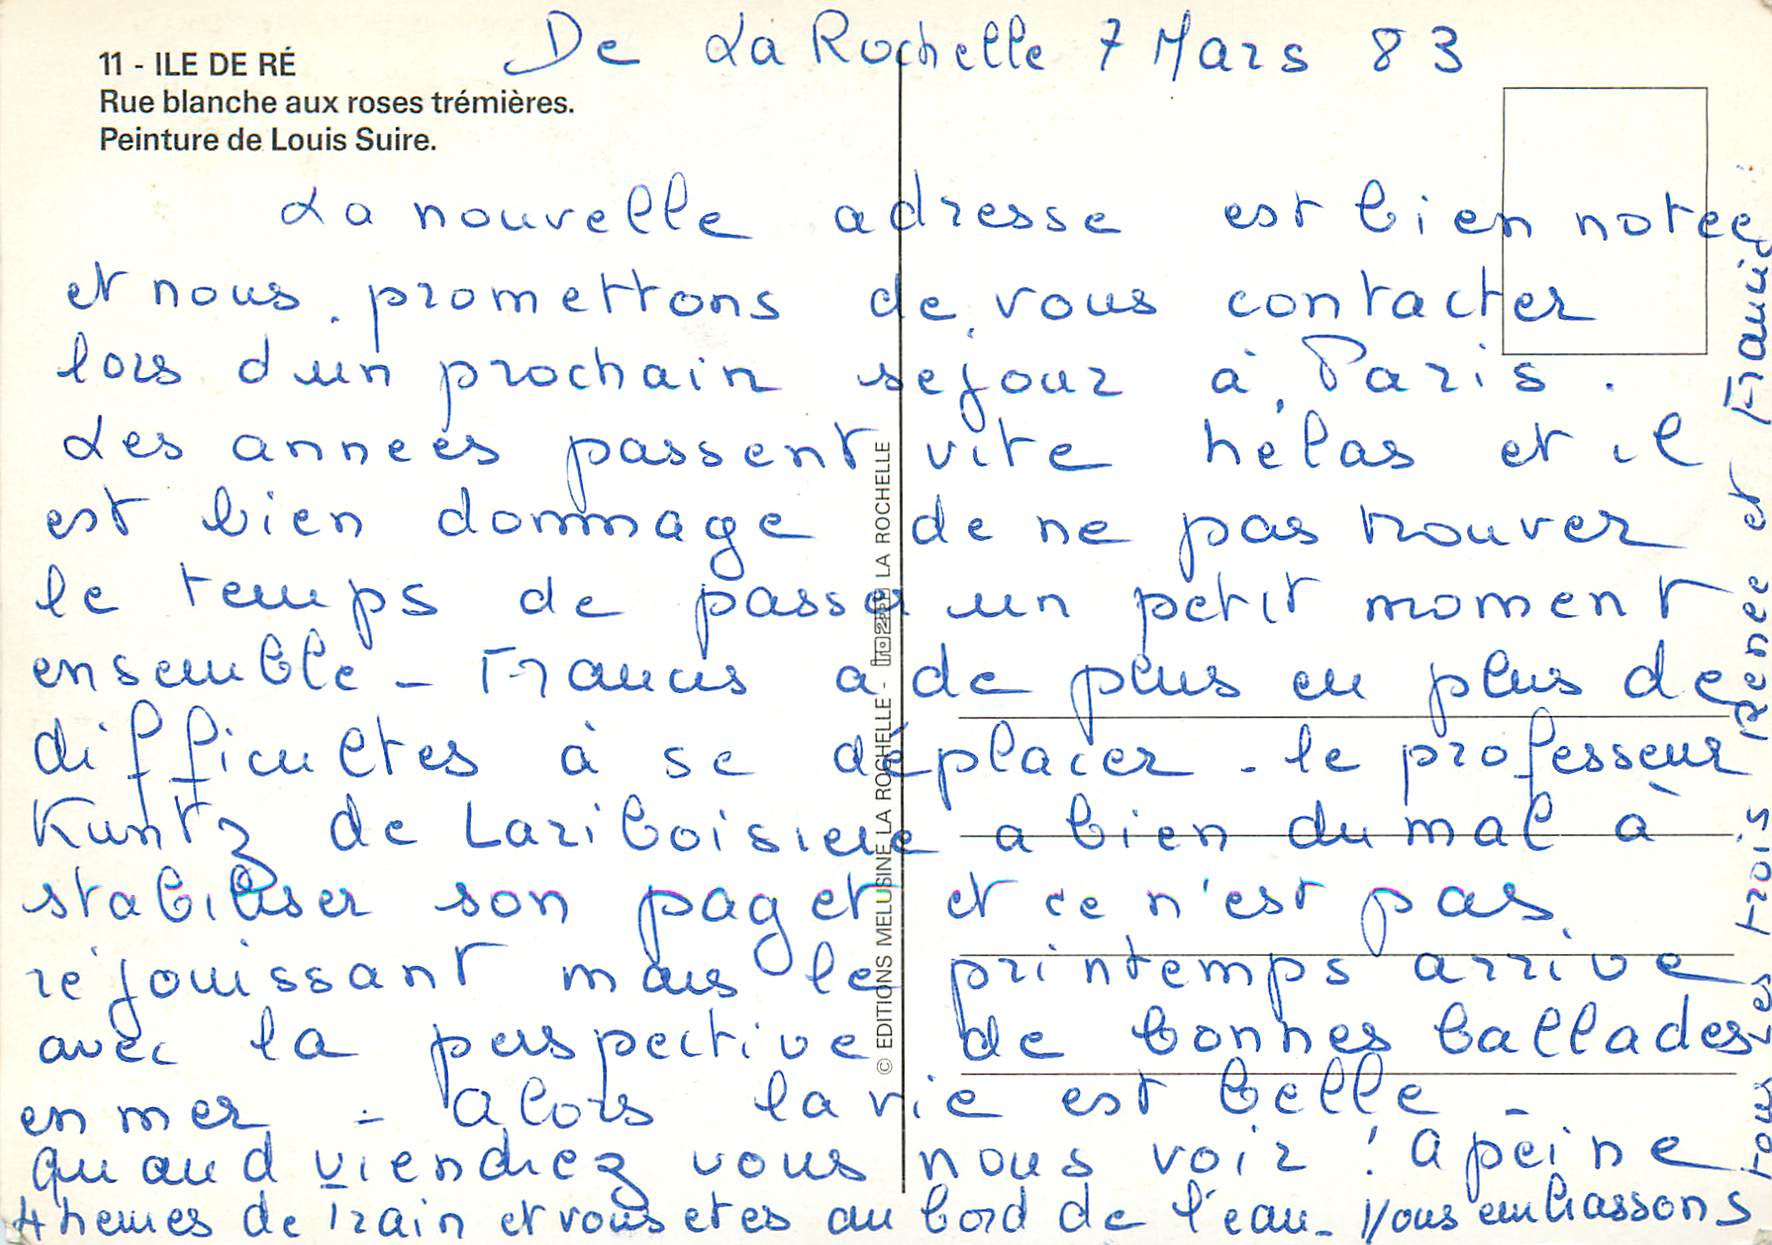 De La Rochelle 7 Mars 83
11 - ILE DE RÉ
Rue blanche aux roses trémières.
Peinture de Louis Suire.
La nouvelle adresse est bien notée
et nous promettons de vous contacter
lors d'un prochain séjour à Paris.
Les années passent vite hélas et il
est bien dommage de ne pas trouver
le temps de passer un petit moment
ensemble - Francis a de plus en plus de
difficultes à se déplacer - le professeur
Kuntz de Lariboisiere a bien du mal à
stabiliser son paget et ce n'est pas
réjouissant mais le printemps arrive
avec la perspective de bonnes ballades
en mer - alors la vie est belle -
quand viendrez vous nous voir ! a peine
4 heures de train et vous etes au bord de l'eau - Vous embrassons
tous les trois Renee et Francis
© EDITIONS MELUSINE LA ROCHELLE - LA ROCHELLE